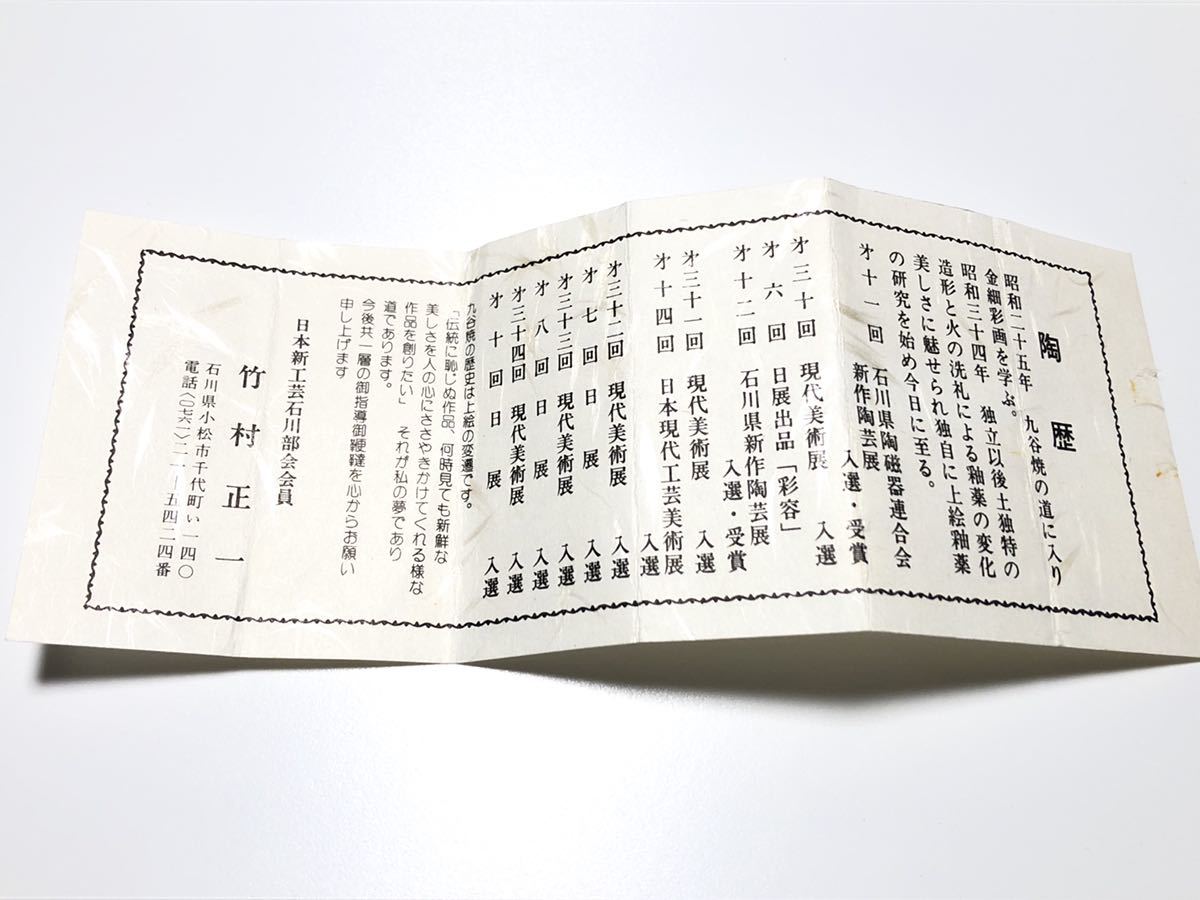 陶歴
昭和二十五年 九谷焼の道に入り
金細彩画を学ぶ。
昭和三十四年 独立以後土独特の
造形と火の洗札による釉薬の変化
美しさに魅せられ独自に上絵釉薬
の研究を始め今日に至る。
才十一回 石川県陶磁器連合会
新作陶芸展
入選・受賞
才三十回 現代美術展 入選
才六回 日展出品「彩容」
才十二回 石川県新作陶芸展
入選・受賞
才三十一回 現代美術展 入選
才十四回 日本現代工芸美術展
入選
才三十二回 現代美術展 入選
才七回日展 入選
才三十三回 現代美術展 入選
才八回日展 入選
才三十四回 現代美術展 入選
才十回日展 入選
九谷焼の歴史は上絵の変遷です。
「伝統に恥じぬ作品、何時見ても新鮮な
美しさを人の心にささやきかけてくれる様な
作品を創りたい」 それが私の夢であり
道であります。
今後共一層の御指導御鞭韃を心からお願い
申し上げます
日本新工芸石川部会会員
竹村正一
石川県小松市千代町い一四〇
電話〈〇七六一〉二一―五四二四番